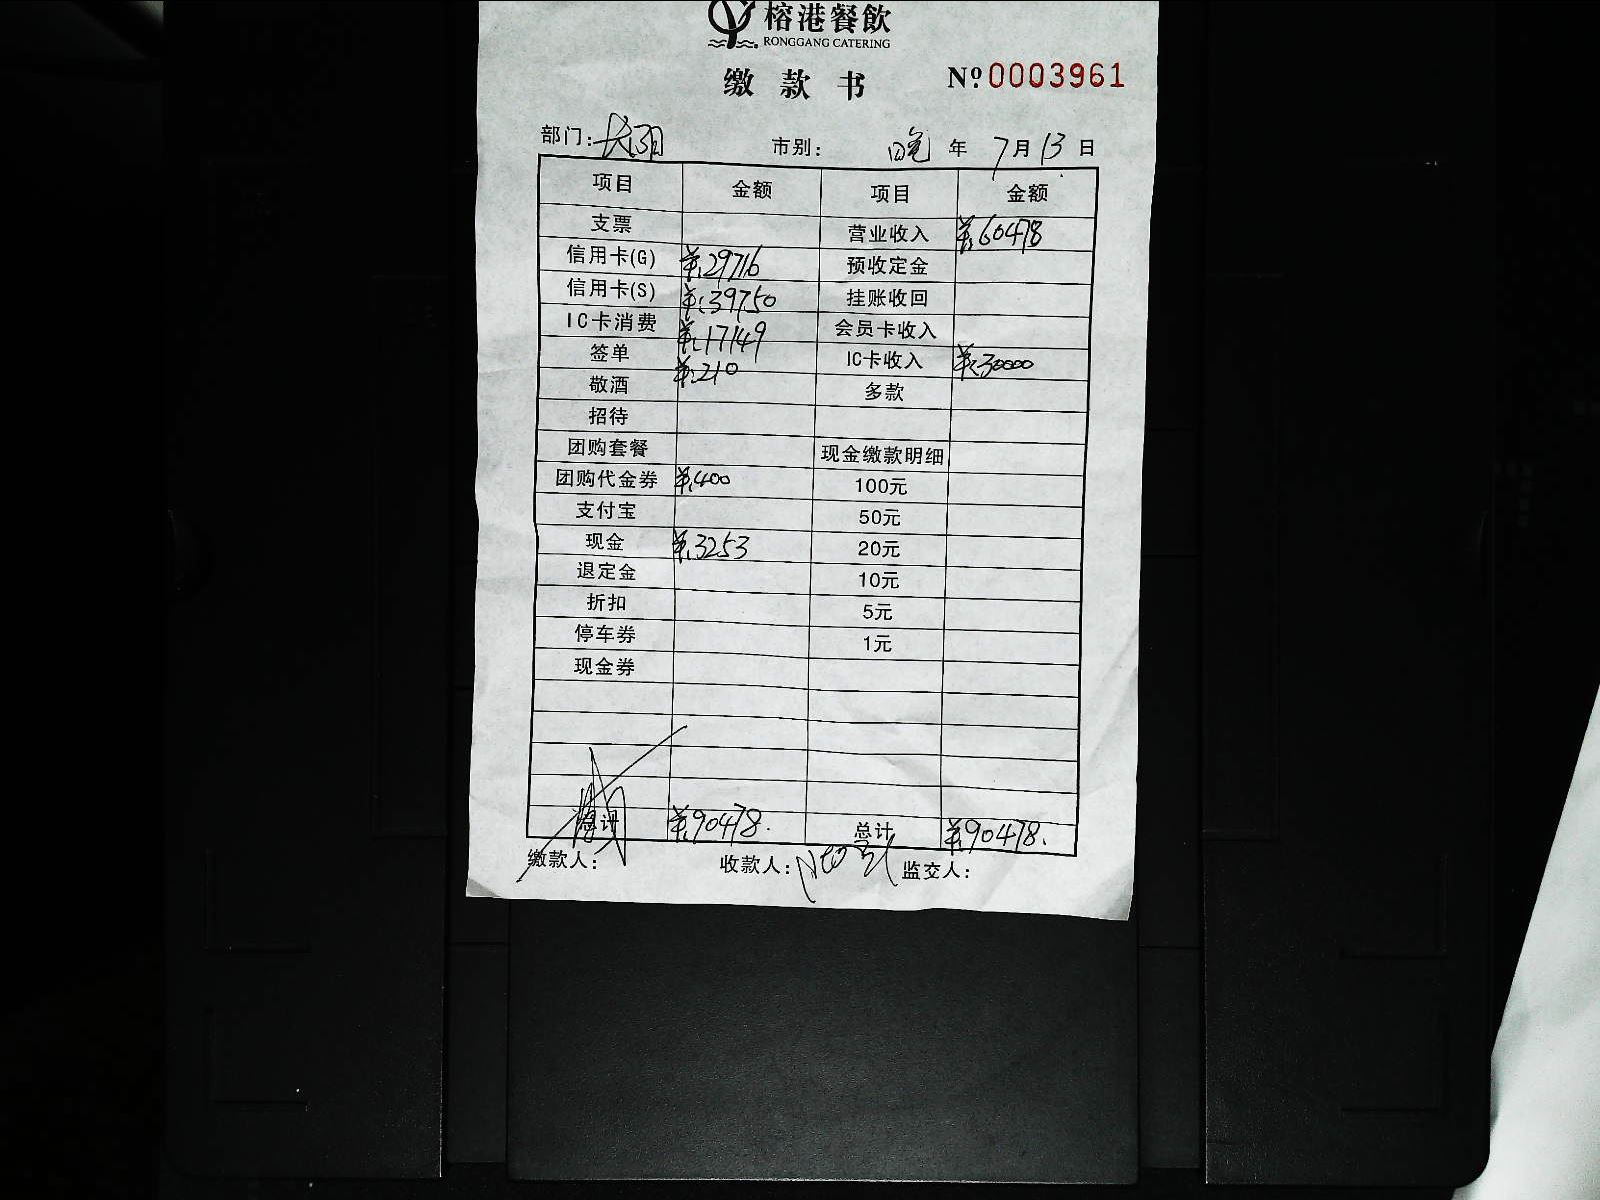 榕港餐飲
RONGGANG CATERING
缴款书
Nº 0003961
部门: 长阳 市别: 晚 年 7月13日
项目 金额 项目 金额
支票 营业收入 ¥:60478
信用卡(G) ¥:29716 预收定金
信用卡(S) ¥:39750 挂账收回
IC卡消费 ¥:17149 会员卡收入
签单 ¥:210 IC卡收入 ¥:30000
敬酒 多款
招待
团购套餐 现金缴款明细
团购代金券 ¥:400 100元
支付宝 50元
现金 ¥:3253 20元
退定金 10元
折扣 5元
停车券 1元
现金券
总计 ¥:90478. 总计 ¥:90478.
缴款人: 收款人: 监交人: